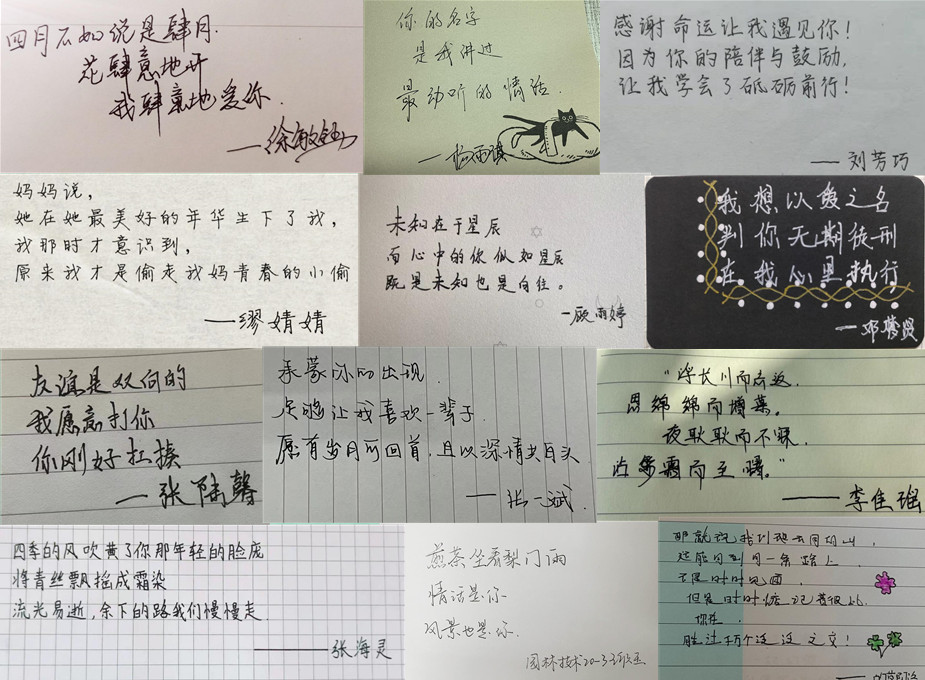 四月不如说是肆月.
花肆意地开
我肆意地爱你.
—徐敏钰
你的名字
是我讲过
最动听的情话
—杨雨琪
感谢命运让我遇见你！
因为你的陪伴与鼓励,
让我学会了砥砺前行！
—刘芳巧
妈妈说,
她在她最美好的年华生下了我,
我那时才意识到,
原来我才是偷走我妈青春的小偷
—缪婧婧
未知在于星辰
而心中的你似如星辰
既是未知也是向往。
—顾雨婷
我想以爱之名
判你无期徒刑
在我心里执行
—邓
友谊是双向的
我愿意打你
你刚好扛揍
—张陆馨
承蒙你的出现.
足够让我喜欢一辈子.
愿有岁月可回首,且以深情共白头.
—张一斌
"浮长川而忘返,
思绵绵而增慕。
夜耿耿而不寐,
沾繁霜而至曙。"
—李佳瑶
四季的风吹黄了你那年轻的脸庞
将青丝飘摇成霜染
流光易逝,余下的路我们慢慢走
—张海灵
煎茶坐看梨门雨
情话是你
风景也是你.
园林技术20-3
那就说我们
一条路上.
不是时时见面,
但是时时惦记着彼此.
你在.
胜过千万个泛泛之交!